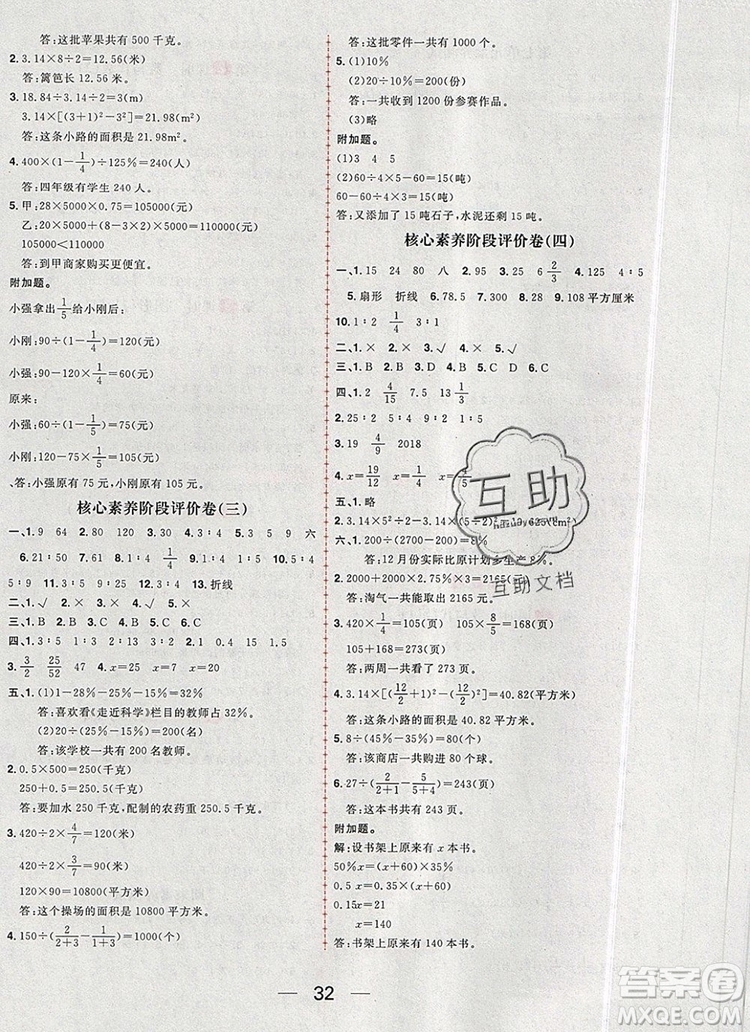 答:这批苹果共有 500 千克。
2. 3.14×8÷2=12.56(米)
答:篱笆长 12.56 米。
3. 18.84÷3.14÷2=3(m)
3.14×[(3+1)²-3²]=21.98(m²)
答:这条小路的面积是 21.98m²。
4. 400×(1-1/4)÷125%=240(人)
答:四年级有学生 240 人。
5. 甲:28×5000×0.75=105000(元)
乙:20×5000+(8-3×2)×5000=110000(元)
105000<110000
答:到甲商家购买更便宜。
附加题。
小强拿出1/5给小刚后:
小刚:90÷(1-1/4)=120(元)
小强:90-120×1/4=60(元)
原来:
小强:60÷(1-1/5)=75(元)
小刚:120-75×1/5=105(元)
答:小强原有 75 元,小刚原有 105 元。
核心素养阶段评价卷(三)
一、1. 9 64 2. 80 3. 9.42 4. 3 5 9 5. 9 六
6. 21:50 7. 51 8. 113.04 9. 5:3 10. 1:5
11. 30 12. 15:16 1/4 13. 折线
二、1. √ 2. × 3. × 4. √ 5. ×
三、1. B 2. B 3. A 4. B 5. C
四、1. 3:5 1:3 2:13 2. 1 0.4 1.5 1.5
3. 3/2 25/52 4. x=1 x=7 x=20
五、1. (1)1-28%-25%-15%=32%
答:喜欢看《走近科学》栏目的教师占 32%。
(2)20÷(28%-15%-3%)=200(名)
答:该学校一共有 200 名教师。
2. 0.5×500=250(千克)
250+0.5=250.5(千克)
答:要加水 250 千克,配制的农药重 250.5 千克。
3. 420÷2×4/7=120(米)
420÷2×3/7=90(米)
120×90=10800(平方米)
答:这个操场的面积是 10800 平方米。
4. 150÷(2/(2+3)-1/(1+3))=1000(个)
答:这批零件一共有 1000 个。
5. (1)10%
(2)200÷10%=2000(份)
答:一共收到 1200 份参赛作品。
(3)略
附加题。
(1)3 4 5
(2)60÷4×5=75(吨)
60-60÷4×3=15(吨)
答:又添加了 15 吨石子,水泥还剩 15 吨。
核心素养阶段评价卷(四)
一、1. 15 24 80 八 2. 95 3. 25 6 2/3 4. 5:3
5. 扇形 折线 6. 78.5 7. 200 8. 28 9. 108 平方厘米
10. 1:2 1/4 3:1
二、1. × 2. × 3. √ 4. × 5. √
三、1. B 2. C 3. B 4. C 5. D
四、1. 2 4/15 7.5 13 1/3
2. 25:2 5:4 9:2 1:5
3. 19 4/9 2018
4. x=19/12 x=4 x=15/4
五、1. 略
2. 3.14×
六、1. (2700-2500)÷2500=8%
答:12 月份实际比原计划多生产 8%。
2. 2000+2000×2.75%×3=2165(元)
答:淘气一共能取出 2165 元。
3. 420×1/4=105(页) 105×8/5=168(页)
105+168=273(页)
答:两周一共看了 273 页。
4. 3.14×[(12/2+1)²-(12/2)²]=40.82(平方米)
答:这条小路的面积是 40.82 平方米。
5. 8÷(45%-35%)=80(个)
答:该商店一共购进 80 个球。
6. 27÷(2/(2+1)-5/(5+4))=243(页)
答:这本书共有 243 页。
附加题。
解:设书架上原来有 x 本书。
50%x=(x+60)×35%
0.5x=(x+60)×0.35
0.15x=21
x=140
答:书架上原来有 140 本书。
32
互助
互助文档
答案圈
MXQE.COM